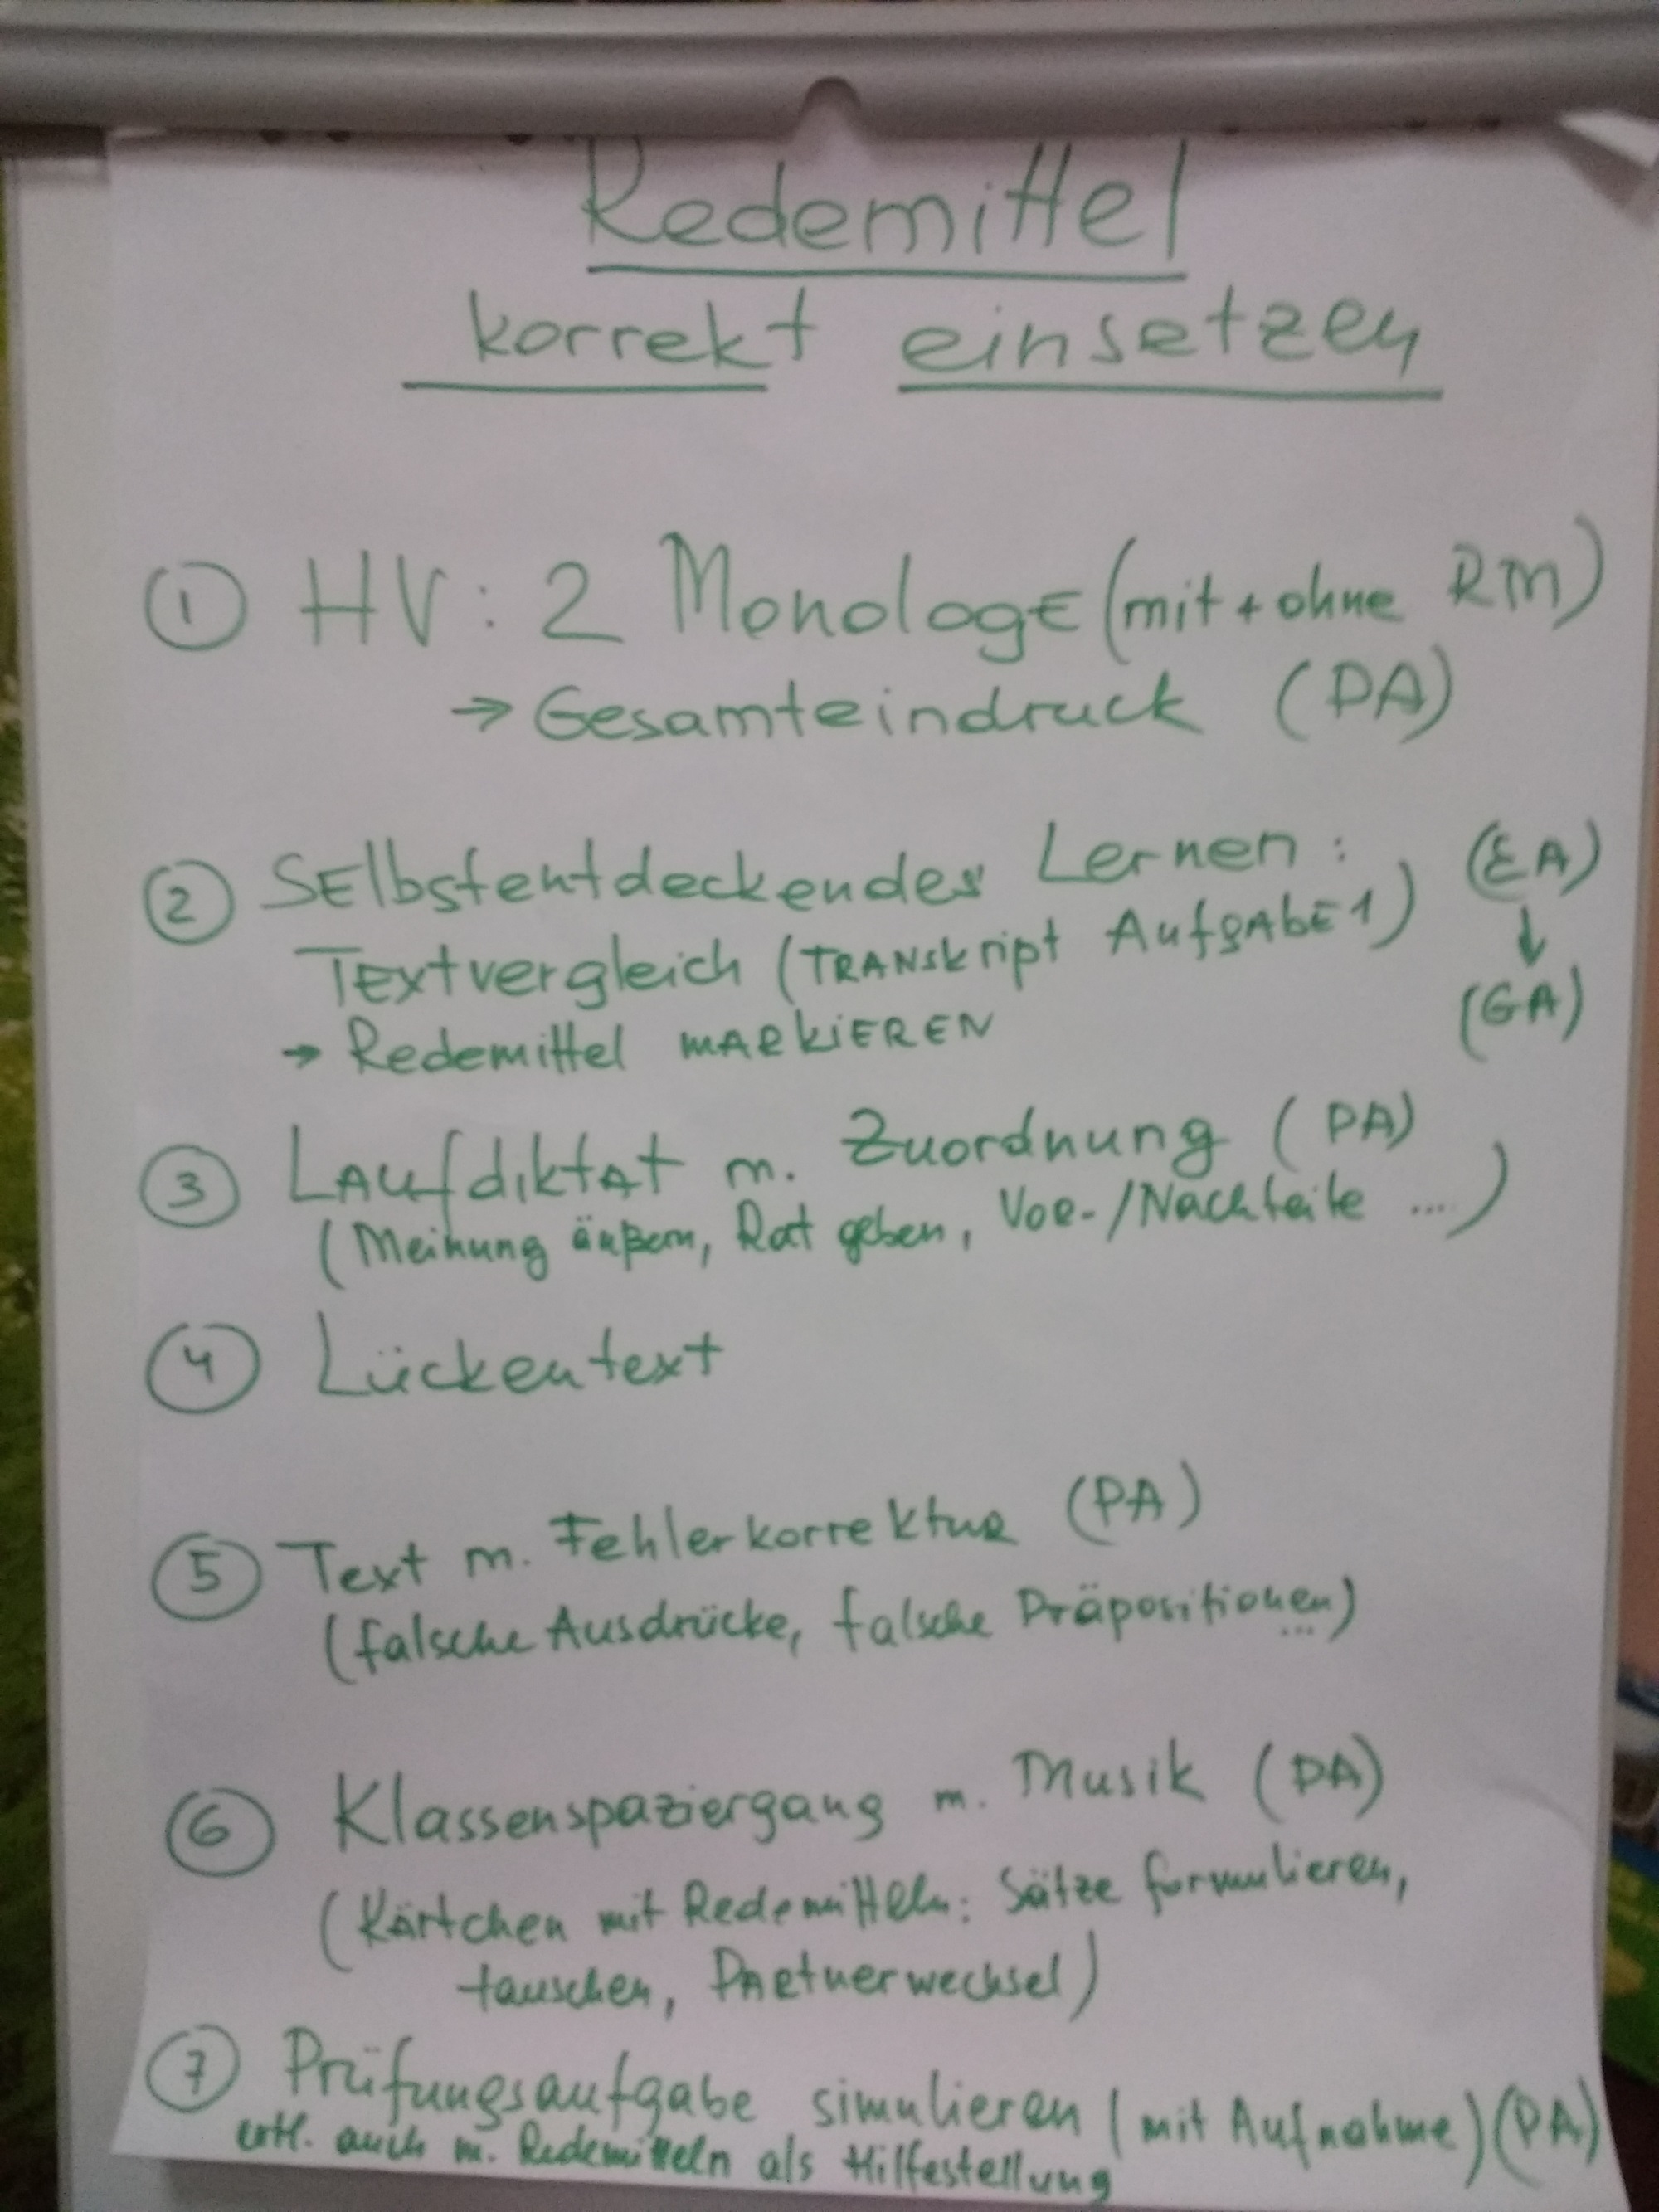 Redemittel
korrekt einsetzen
① HV: 2 Monologe (mit + ohne RM)
→ Gesamteindruck (PA)
② Selbstentdeckendes Lernen: (EA)
Textvergleich (Transkript Aufgabe 1) ↓
→ Redemittel markieren (GA)
③ Laufdiktat m. Zuordnung (PA)
(Meinung äußern, Rat geben, Vor-/Nachteile ....)
④ Lückentext
⑤ Text m. Fehlerkorrektur (PA)
(falsche Ausdrücke, falsche Präpositionen) ...
⑥ Klassenspaziergang m. Musik (PA)
(Kärtchen mit Redemitteln: Sätze formulieren,
tauschen, Partnerwechsel)
⑦ Prüfungsaufgabe simulieren (mit Aufnahme) (PA)
auch m. Redemitteln als Hilfestellung